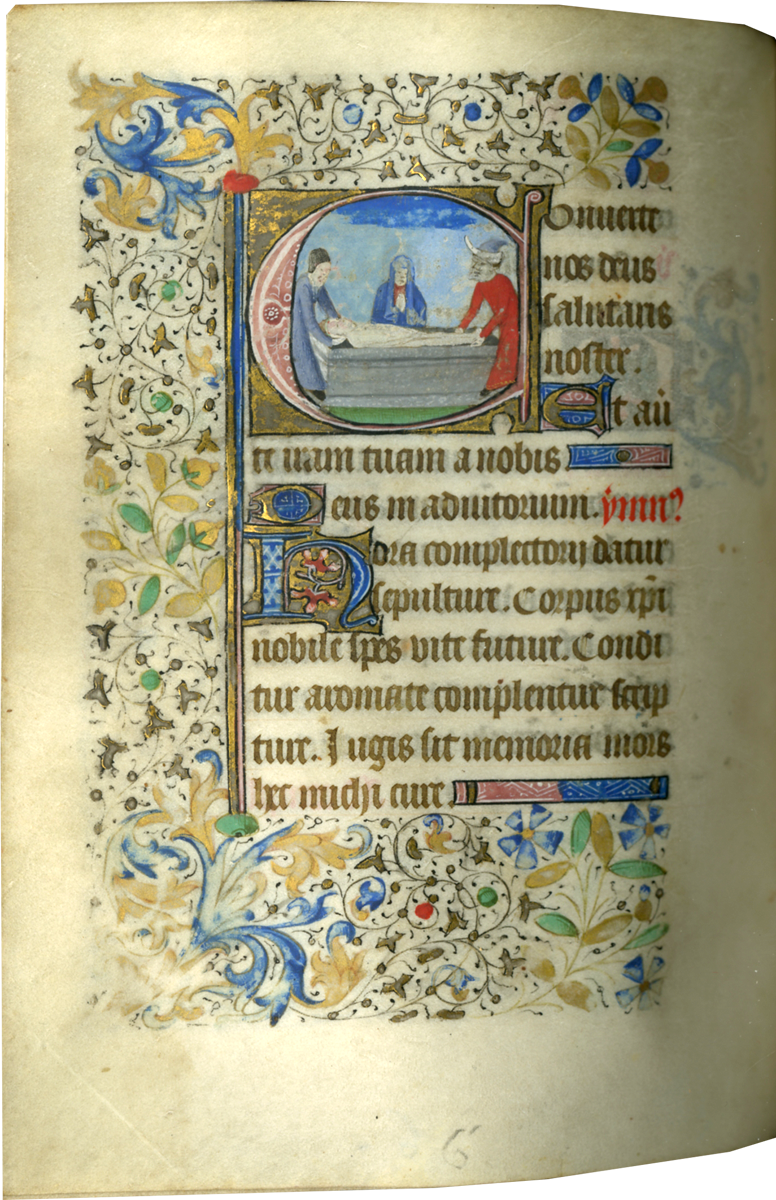 Conuerte
nos deus
salutaris
noster.
Et auer
te iram tuam a nobis
Deus in adiutorium. ymnꝰ
Hora completorij datur
sepulture. Corpus xpi
nobile spes vite future. Condi
tur aromate complentur scrip
ture. Iugis sit memoria mors
hec michi cure.
6